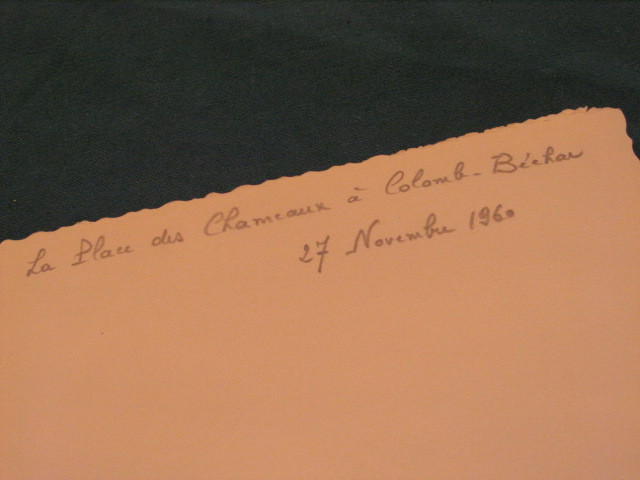 La Place des Chameaux à Colomb-Béchar
27 Novembre 1960